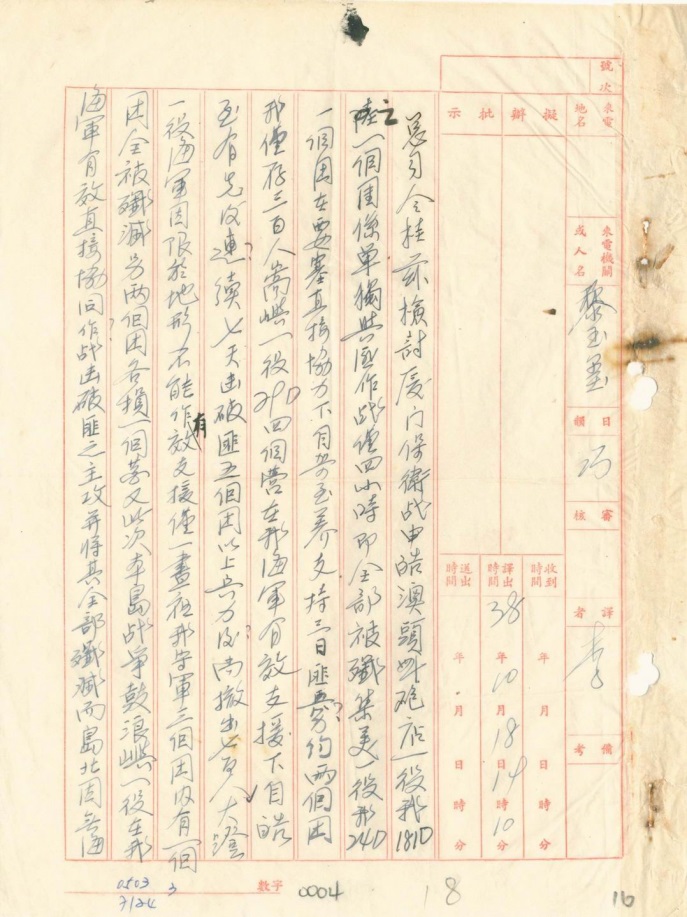 號次
來電地名
來電機關或人名 黎玉璽
日韻 巧
審核
譯者 李
備考
擬辦批示
收到時間 年 月 日 時 分
譯出時間 38年10月18日14時10分
送出時間 年 月 日 時 分
總司令桂 檢討廈门保衛战申皓澳頭 砲店一役我181D
之陸一個團係單獨與匪作战僅四小時即全部被殲集美一役我24D
一個团在要塞直接協力下自 至养支持三日匪 約两個团
我僅存三百人嵩嶼一役29D四個營在我海軍有效支援下自皓
至有先後連續七天击破匪五個团以上兵力後尚撤出七百人大澄
一役海軍因限於地形不能作有效支援僅一晝夜我守軍三個团內有一個
团全被殲滅另两個团各損一個营又此次本島战爭鼓浪嶼一役在我
海軍有效直接協同作战击破匪之主攻并將其全部殲滅而島北因無海
0503
3/24
3
字數 0004
18
16